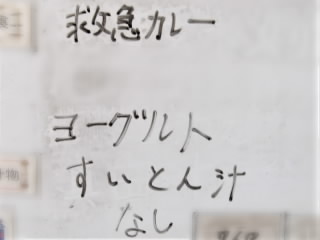 救急カレー
ヨーグルト
すいとん汁
なし